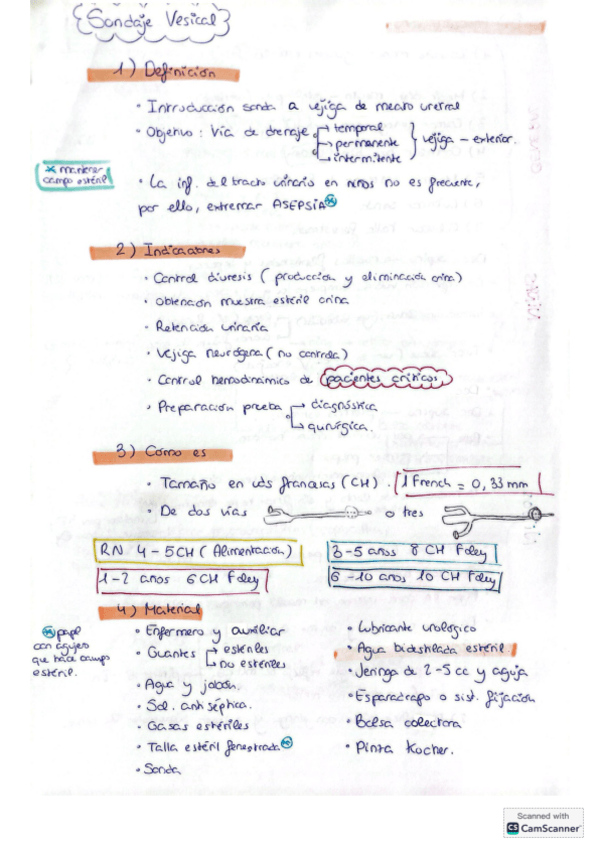 Sondaje Vesical
1) Definición
• Introducción sonda a vejiga de meato uretral
• Objetivo: Vía de drenaje → temporal
→ permanente } vejiga - exterior.
→ intermitente
* mantener
campo estéril
• La inf. del tracto urinario en niños no es frecuente,
por ello, extremar ASEPSIA *
2) Indicaciones
• Control diuresis (producción y eliminación orina)
• Obtención muestra estéril orina
• Retención urinaria
• Vejiga neurógena (no controla)
• Control hemodinámico de pacientes críticos,
• Preparación prueba → diagnóstica
→ quirúrgica.
3) Cómo es
• Tamaño en uds francesas (CH). 1 French = 0,33 mm
• De dos vías o tres
RN 4-5CH (Alimentación) 3-5 años 8 CH Foley
1-2 años 6CH Foley 6-10 años 10 CH Foley
4) Material
* papel
con agujero
que hace campo
estéril.
• Enfermero y auxiliar
• Guantes → estériles
→ no estériles
• Agua y jabón.
• Sol. antiséptica.
• Gasas estériles
• Talla estéril fenestrada *
• Sonda
• Lubricante urológico
• Agua bidestilada estéril
• Jeringa de 2-5 cc y aguja
• Esparadrapo o sist. fijación
• Bolsa colectora
• Pinza Kocher.
Scanned with
CS CamScanner